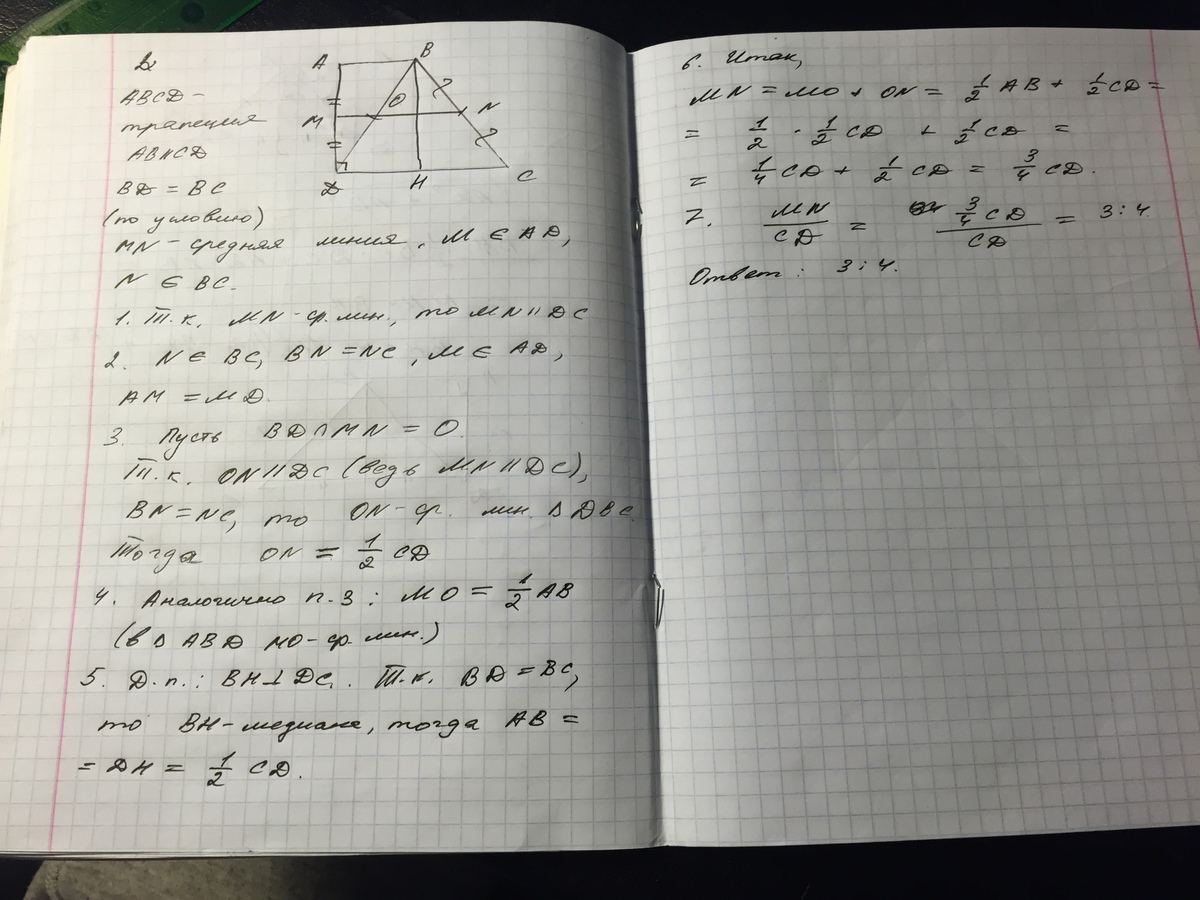 A
B
O
M
N
D
H
C
ABCD -
трапеция
AB || CD
BD = BC
(по условию)
MN - средняя линия, M ∈ AD,
N ∈ BC.
1. Т.к. MN - ср. лин., то MN || DC
2. N ∈ BC, BN = NC, M ∈ AD,
AM = MD.
3. Пусть BD ∩ MN = O.
Т.к. ON || DC (ведь MN || DC),
BN = NC, то ON - ср. лин. Δ DBC.
Тогда ON = 1/2 CD
4. Аналогично п. 3 : MO = 1/2 AB
(в Δ ABD MO - ср. лин.)
5. Д.п.: BH ⊥ DC. Т.к. BD = BC,
то BH - медиана, тогда AB =
= DH = 1/2 CD.
6. Итак,
MN = MO + ON = 1/2 AB + 1/2 CD =
= 1/2 · 1/2 CD + 1/2 CD =
= 1/4 CD + 1/2 CD = 3/4 CD.
7. MN/CD = 3/4 CD / CD = 3 : 4
Ответ : 3 : 4.